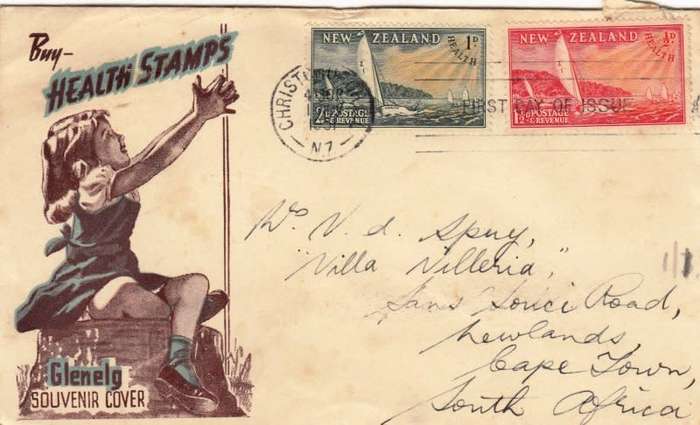 Buy-
HEALTH STAMPS
Glenelg
SOUVENIR COVER
NEW ZEALAND
1D
HEALTH
2D POSTAGE
& REVENUE
NEW ZEALAND
½D
HEALTH
1½D POSTAGE
& REVENUE
CHRISTCHURCH
1951
N.Z.
FIRST DAY OF ISSUE
V. d. Spuy,
"Villa Villeria,"
Sans Souci Road,
Newlands,
Cape Town,
South Africa